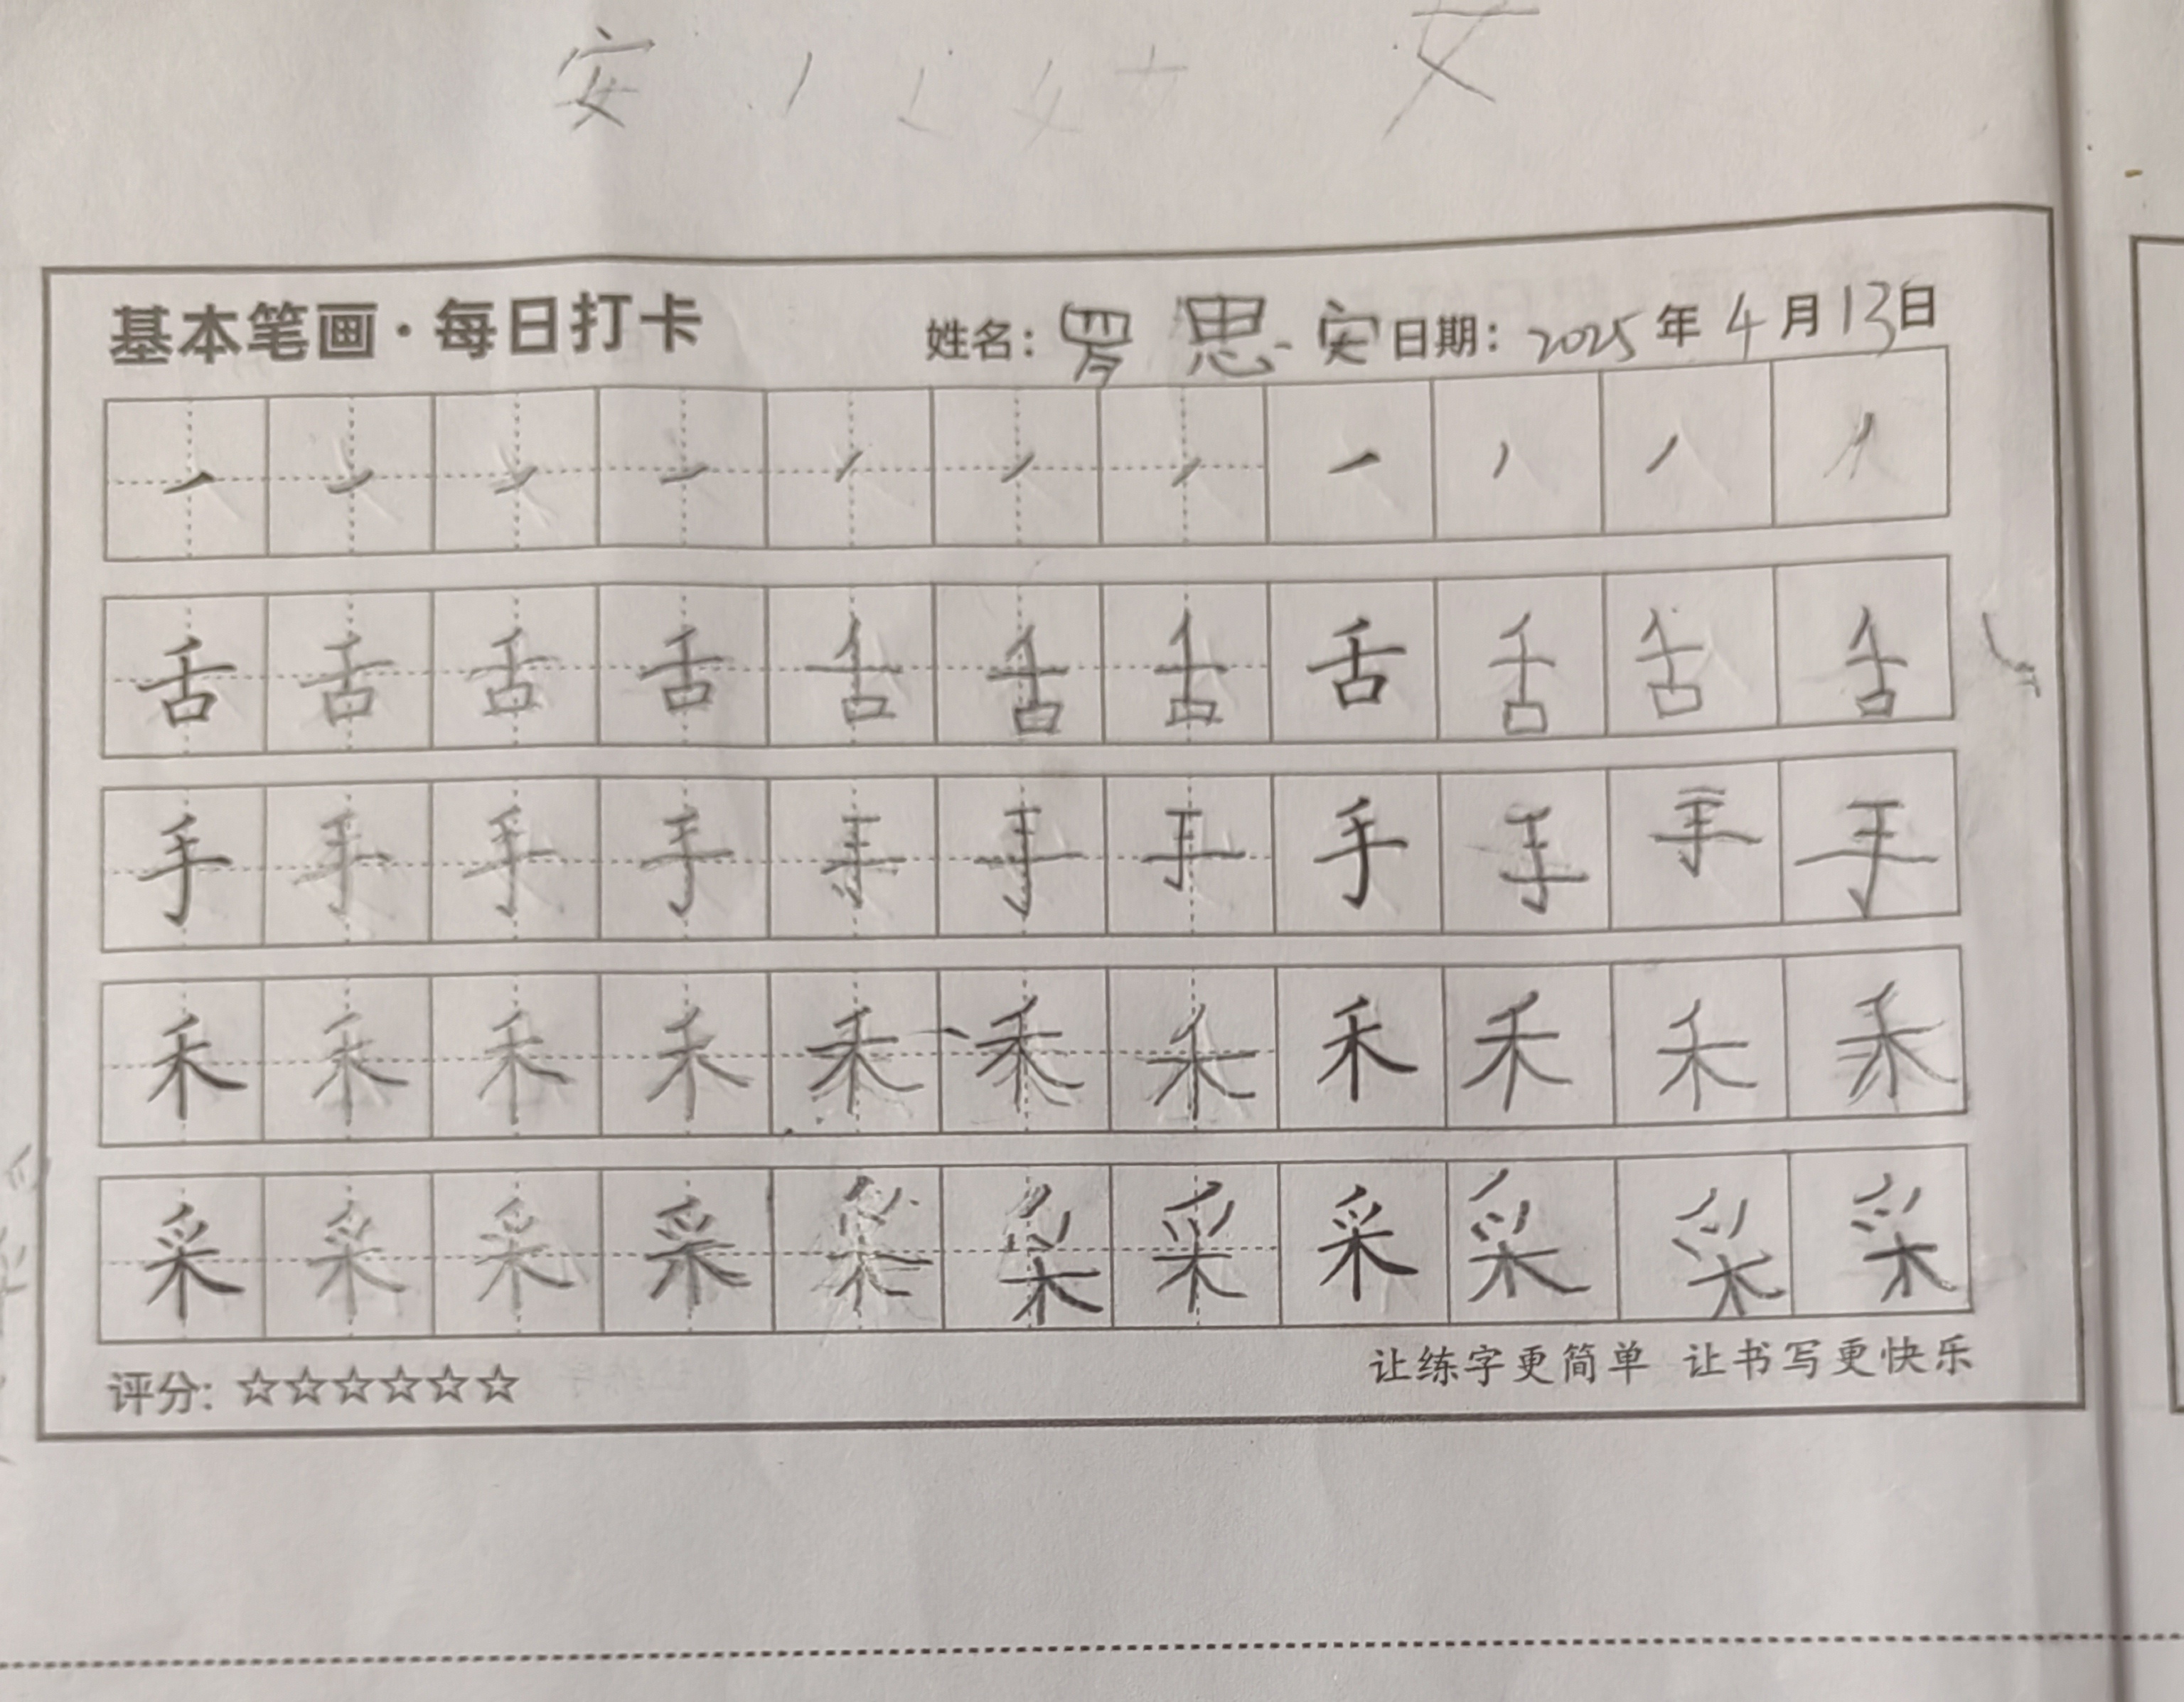 安 丿 女 女
基本笔画·每日打卡 姓名：罗思安 日期：2025年4月13日
㇒ ㇒ ㇒ ㇒ ㇒ ㇒ ㇒ ㇒ ㇒ ㇒ ㇒
舌 舌 舌 舌 舌 舌 舌 舌 舌 舌 舌
手 手 手 手 手 手 手 手 手 手 手
禾 禾 禾 禾 禾 禾 禾 禾 禾 禾 禾
采 采 采 采 采 采 采 采 采 采 采
评分：☆☆☆☆☆☆ 让练字更简单 让书写更快乐